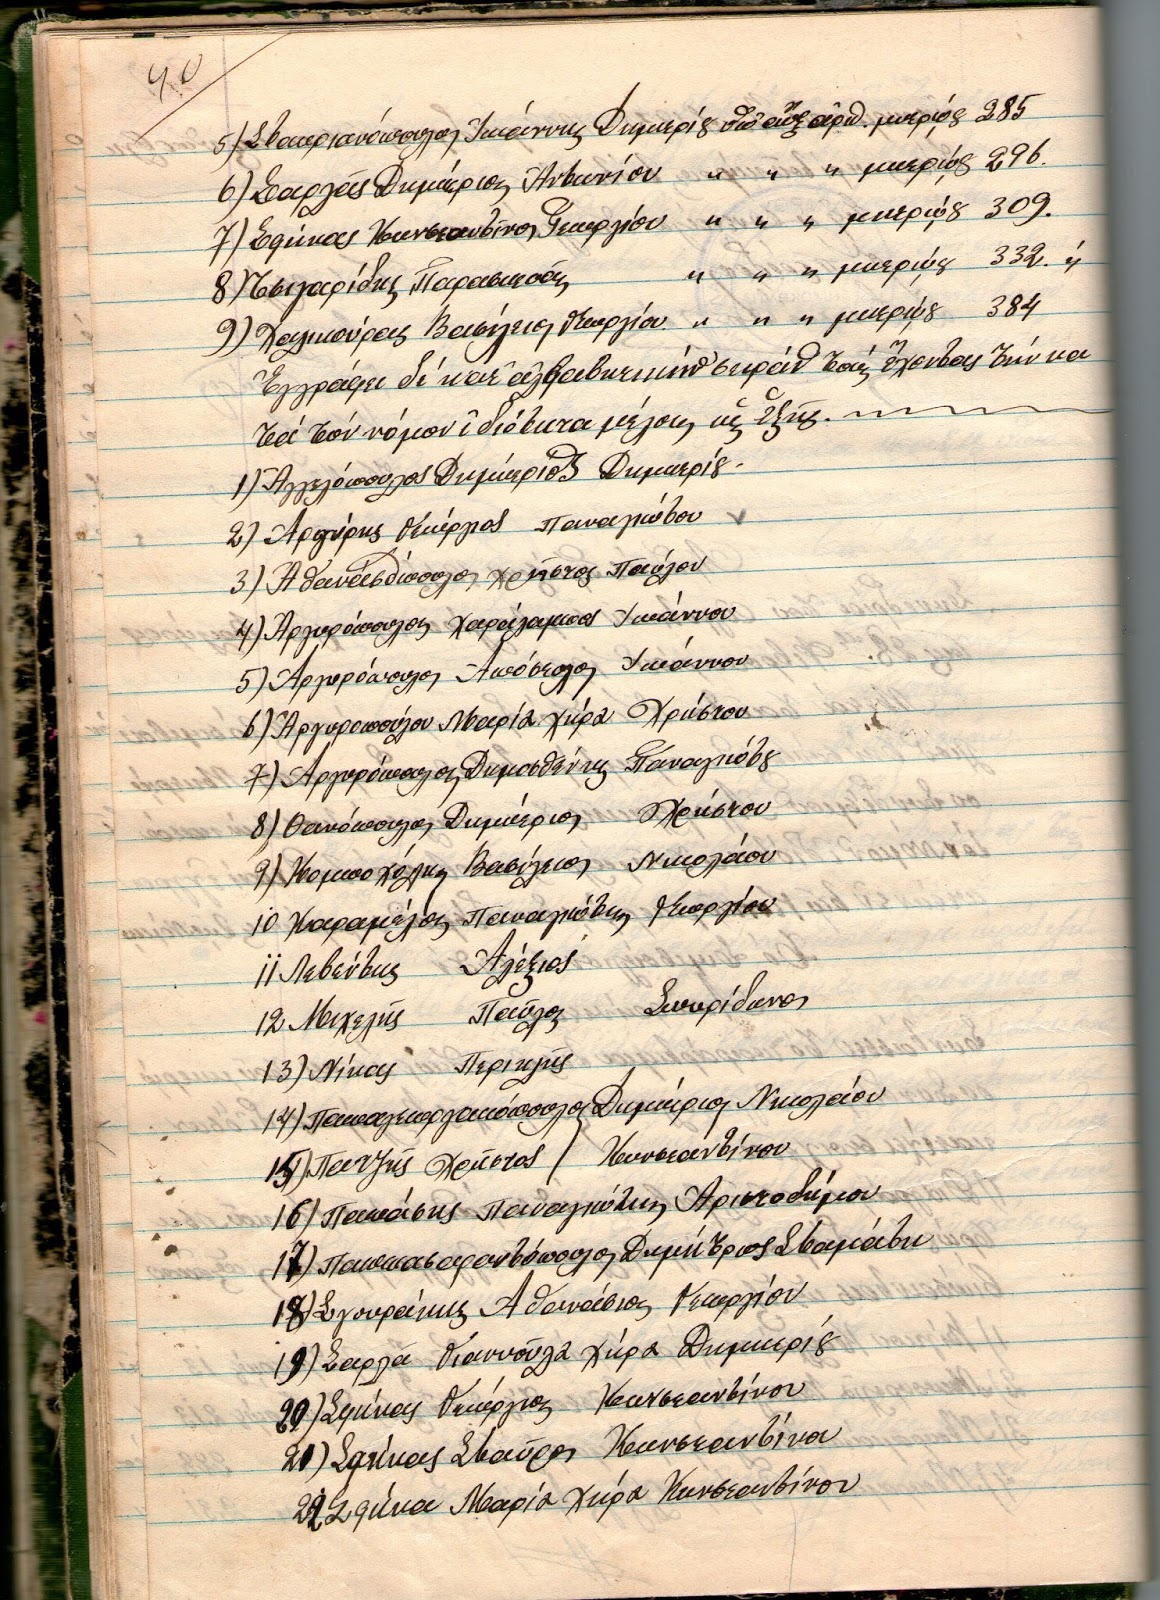 40
5) Σταυριανόπουλος Ιωάννης Δημητρίου ὑπ' αὔξ. ἀριθ. μητρώου 285
6) Σαρλᾶς Δημήτριος Ἀντωνίου " " " μητρώου 296.
7) Σφήκας Κωνσταντῖνος Γεωργίου " " " μητρώου 309.
8) Τσιγαρίδης Παρασκευᾶς " " " μητρώου 332. ἤ
9) Χαλικούρας Βασίλειος Γεωργίου " " " μητρώου 384
Ἐγγράφει δέ κατ' ἀλφαβητικήν σειράν τούς ἔχοντας τήν κα
τά τόν νόμον ἰδιότητα μέλους ὡς ἑξῆς.
1) Ἀγγελόπουλος Δημήτριος Δημητρίου.
2) Αργύρης Γεώργιος Παναγιώτου
3) Ἀθανασόπουλος Χρῆστος Παύλου
4) Αργυρόπουλος Χαράλαμπος Ιωάννου
5) Αργυρόπουλος Ἀπόστολος Ιωάννου
6) Ἀργυροπούλου Μαρία χήρα Χρήστου
7) Αργυρόπουλος Δημοσθένης Παναγιώτου
8) Θανόπουλος Δημήτριος Χρήστου
9) Κομποχόλης Βασίλειος Νικολάου
10 Καραμέλος Παναγιώτης Γεωργίου
11 Λεβέντης Ἀλέξιος
12 Μιχελῆς Παῦλος Σπυρίδωνος
13) Νίκας Περικλῆς
14) Παπαγεωργακόπουλος Δημήτριος Νικολάου
15) Πατζῆς Χρῆστος Κωνσταντίνου
16) Παπάσης Παναγιώτης Αριστοδήμου
17) Παπασαραντόπουλος Δημήτριος Σταμάτη
18) Σγουράκης Ἀθανάσιος Γεωργίου
19) Σαρλᾶ Γιαννοῦλα χήρα Δημητρίου
20) Σφήκας Γεώργιος Κωνσταντίνου
21) Σφήκας Σταῦρος Κωνσταντίνου
22 Σφήκα Μαρία χήρα Κωνσταντίνου